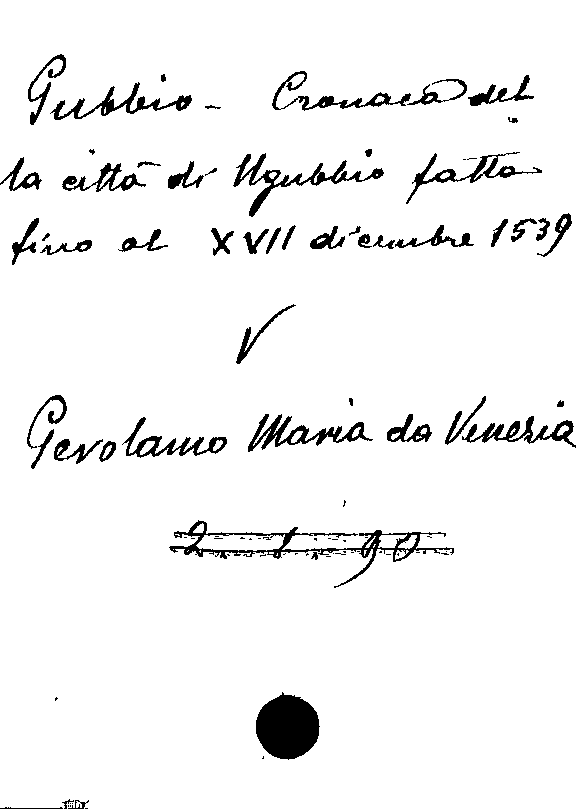 Gubbio - Cronaca del
la città di Ugubbio fatta
fino al XVII dicembre 1539
V
Gerolamo Maria da Venezia
2. I. 90